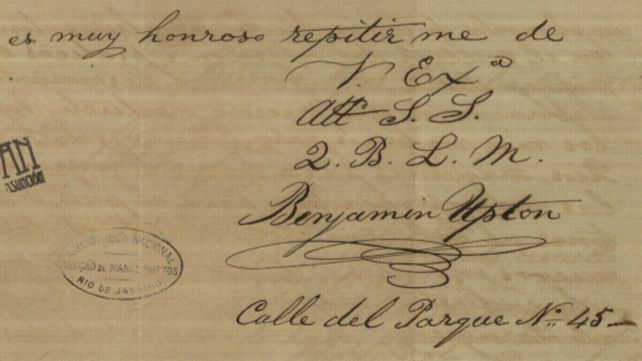 es muy honroso repitir me de
V. Exª
Att S. S.
Q. B. L. M.
Benjamin Upton
AN
ASUNCION
BIBLIOTECA NACIONAL
SECÇÃO DE MANUSCRIPTOS
RIO DE JANEIRO
Calle del Parque Nº 45